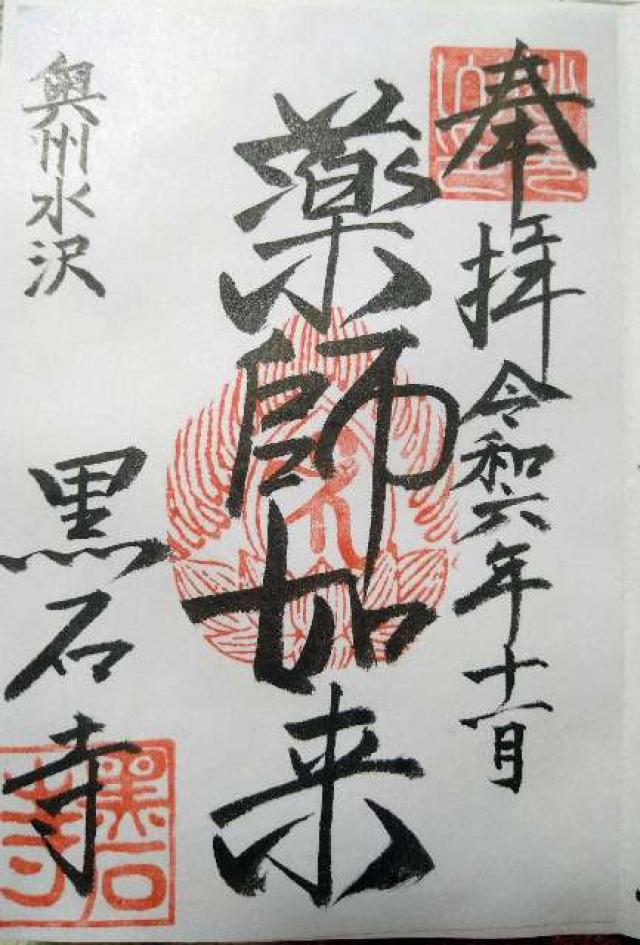 奉拝 令和六年十一月
薬師如来
奥州水沢
黒石寺
黒石寺